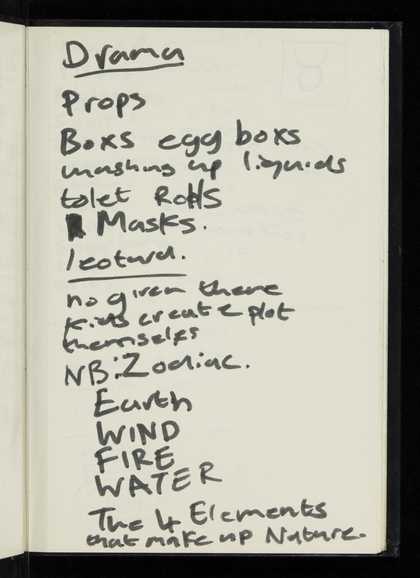 Drama
Props
Boxs egg boxs
washing up liquids
tolet Rolls
Masks.
leotard.
no given theme
kids create plot
themselfs
NB: Zodiac.
Earth
WIND
FIRE
WATER
The 4 Elements
that make up Nature.